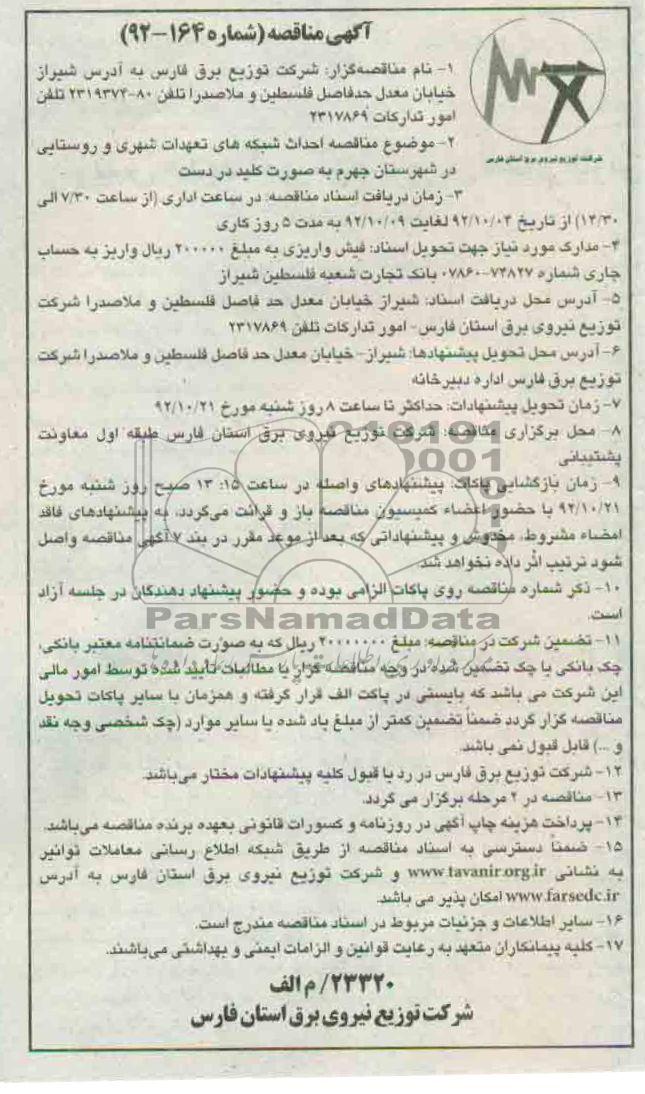 آگهی مناقصه (شماره ۱۶۴-۹۲)
۱- نام مناقصه‌گزار: شرکت توزیع برق فارس به آدرس شیراز
خیابان معدل حدفاصل فلسطین و ملاصدرا تلفن ۸۰-۲۳۱۹۳۷۴ تلفن
امور تدارکات ۲۳۱۷۸۶۹
شرکت توزیع نیروی برق استان فارس
۲- موضوع مناقصه احداث شبکه های تعهدات شهری و روستایی
در شهرستان جهرم به صورت کلید در دست
۳- زمان دریافت اسناد مناقصه: در ساعت اداری (از ساعت ۷/۳۰ الی
۱۴/۳۰) از تاریخ ۹۲/۱۰/۰۴ لغایت ۹۲/۱۰/۰۹ به مدت ۵ روز کاری
۴- مدارک مورد نیاز جهت تحویل اسناد: فیش واریزی به مبلغ ۲۰۰۰۰۰ ریال واریز به حساب
جاری شماره ۷۴۸۲۷-۰۷۸۶۰ بانک تجارت شعبه فلسطین شیراز
۵- آدرس محل دریافت اسناد: شیراز خیابان معدل حد فاصل فلسطین و ملاصدرا شرکت
توزیع نیروی برق استان فارس- امور تدارکات تلفن ۲۳۱۷۸۶۹
۶- آدرس محل تحویل پیشنهادها: شیراز- خیابان معدل حد فاصل فلسطین و ملاصدرا شرکت
توزیع برق فارس اداره دبیرخانه
۷- زمان تحویل پیشنهادات: حداکثر تا ساعت ۸ روز شنبه مورخ ۹۲/۱۰/۲۱
۸- محل برگزاری مناقصه: شرکت توزیع نیروی برق استان فارس طبقه اول معاونت
پشتیبانی
۹- زمان بازگشایی پاکات: پیشنهادهای واصله در ساعت ۱۵: ۱۳ صبح روز شنبه مورخ
۹۲/۱۰/۲۱ با حضور اعضاء کمیسیون مناقصه باز و قرائت می‌گردد، به پیشنهادهای فاقد
امضاء مشروط، مخدوش و پیشنهاداتی که بعد از موعد مقرر در بند ۷ آگهی مناقصه واصل
شود ترتیب اثر داده نخواهد شد.
۱۰- ذکر شماره مناقصه روی پاکات الزامی بوده و حضور پیشنهاد دهندگان در جلسه آزاد
است.
ParsNamadData
۱۱- تضمین شرکت در مناقصه: مبلغ ۲۰۰۰۰۰۰۰ ریال که به صورت ضمانتنامه معتبر بانکی،
چک بانکی یا چک تضمین شده در وجه مناقصه گزار یا مطالبات تایید شده توسط امور مالی
این شرکت می باشد که بایستی در پاکت الف قرار گرفته و همزمان با سایر پاکات تحویل
مناقصه گزار گردد ضمناً تضمین کمتر از مبلغ یاد شده یا سایر موارد (چک شخصی وجه نقد
و ...) قابل قبول نمی باشد.
۱۲- شرکت توزیع برق فارس در رد یا قبول کلیه پیشنهادات مختار می‌باشد.
۱۳- مناقصه در ۲ مرحله برگزار می گردد.
۱۴- پرداخت هزینه چاپ آگهی در روزنامه و کسورات قانونی بعهده برنده مناقصه می‌باشد.
۱۵- ضمناً دسترسی به اسناد مناقصه از طریق شبکه اطلاع رسانی معاملات توانیر
به نشانی www.tavanir.org.ir و شرکت توزیع نیروی برق استان فارس به آدرس
www.farsedc.ir امکان پذیر می باشد.
۱۶- سایر اطلاعات و جزئیات مربوط در اسناد مناقصه مندرج است.
۱۷- کلیه پیمانکاران متعهد به رعایت قوانین و الزامات ایمنی و بهداشتی می‌باشند.
۲۳۳۲۰/ م الف
شرکت توزیع نیروی برق استان فارس